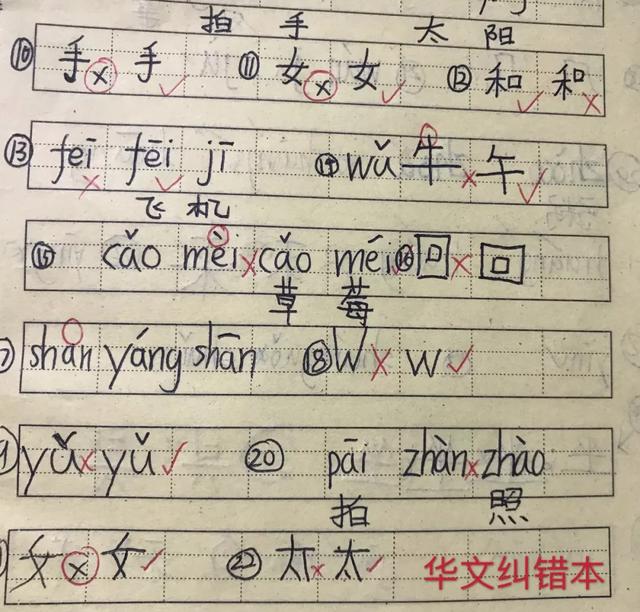 拍 手 太 阳
⑩ 手 × 手 ✓ ⑪ 女 × 女 ✓ ⑫ 和 ✓ 和 ×
⑬ feī × fēi ✓ jī ⑭ wǔ 牛 × 午 ✓
飞 机
⑮ cǎo mèi × cǎo méi ⑯ 回 × 回
草 莓
shān yáng shān ⑱ W × W ✓
yǔ × yǔ ✓ ⑳ pāi zhàn × zhào
拍 照
女 × 女 ✓ ㉒ 太 × 太 ✓
华文纠错本